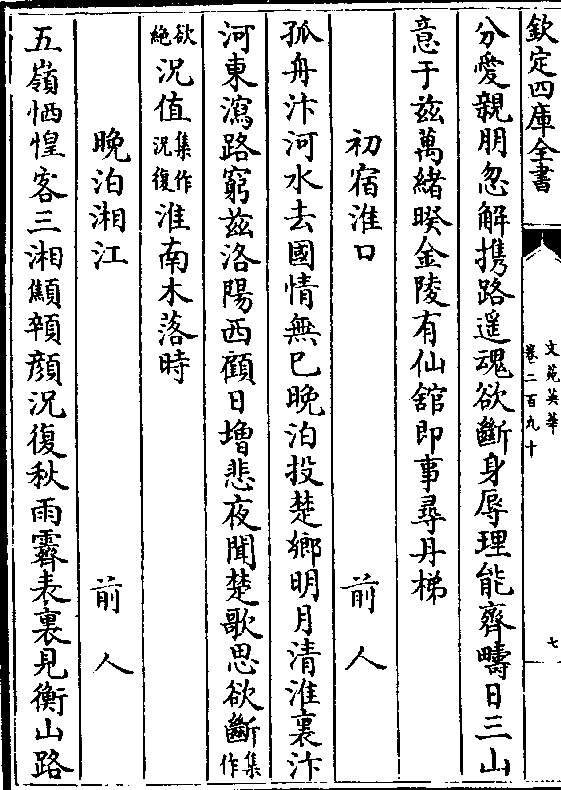 欽定四庫全書
文苑英華
卷二百九十
七
分愛親朋忽解携路遥魂欲斷身辱理能齊疇日三山
意于兹萬緒暌金陵有仙舘即事尋丹梯
初宿淮口 前人
孤舟汴河水去國情無已晚泊投楚鄉明月清淮裏汴
河東瀉路窮兹洛陽西顧日増悲夜聞楚歌思欲斷集作
欲絶況值集作況復淮南木落時
晚泊湘江 前人
五嶺恓惶客三湘顦顇顔況復秋雨霽表裏見衡山路